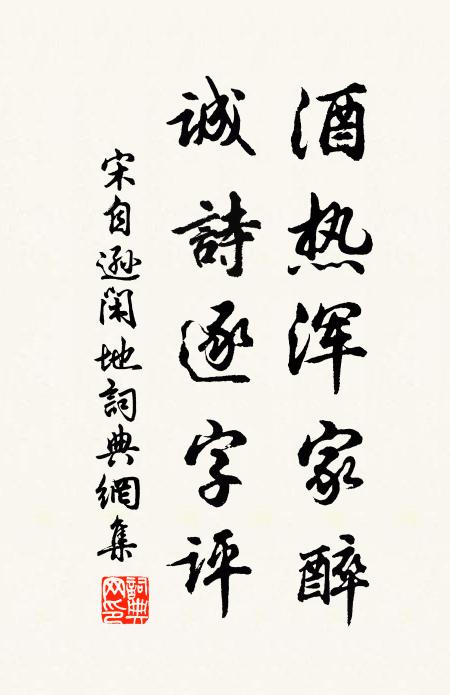 酒热浑家醉
诚詩逐字评
宋自遜闲地詞典網集
詞典
网印